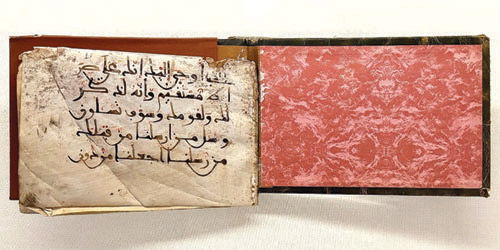 اوحي اليك انك على
مستقيم وانه لذكر
لك ولقومك وسوف تسلون
وسل من ارسلنا من قبلك
من رسلنا اجعلنا من دون